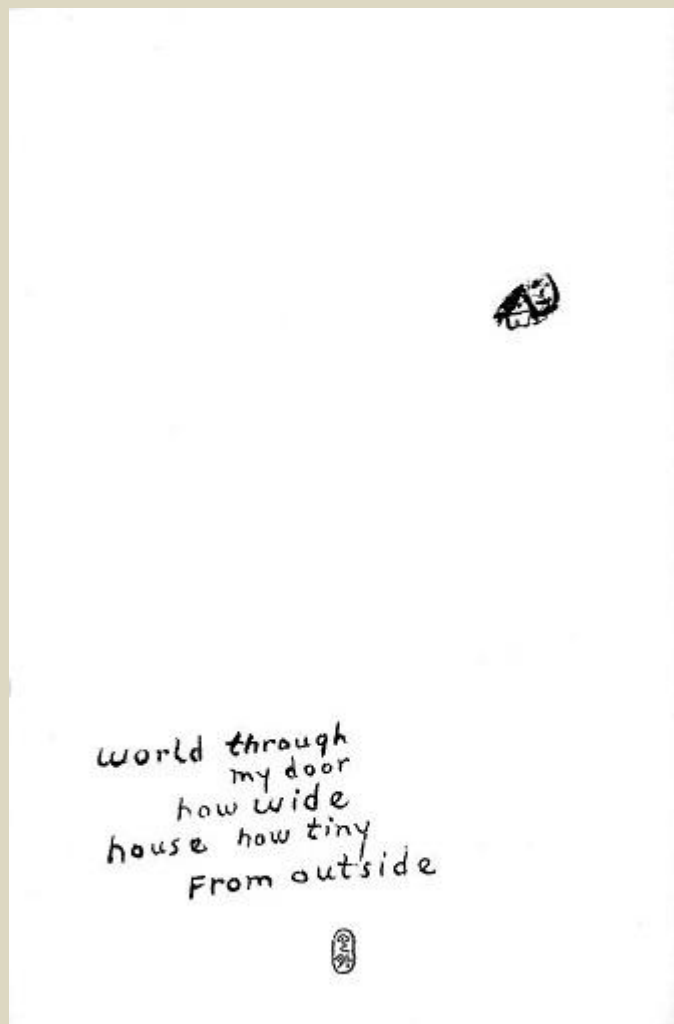 world through
my door
how wide
house how tiny
From outside